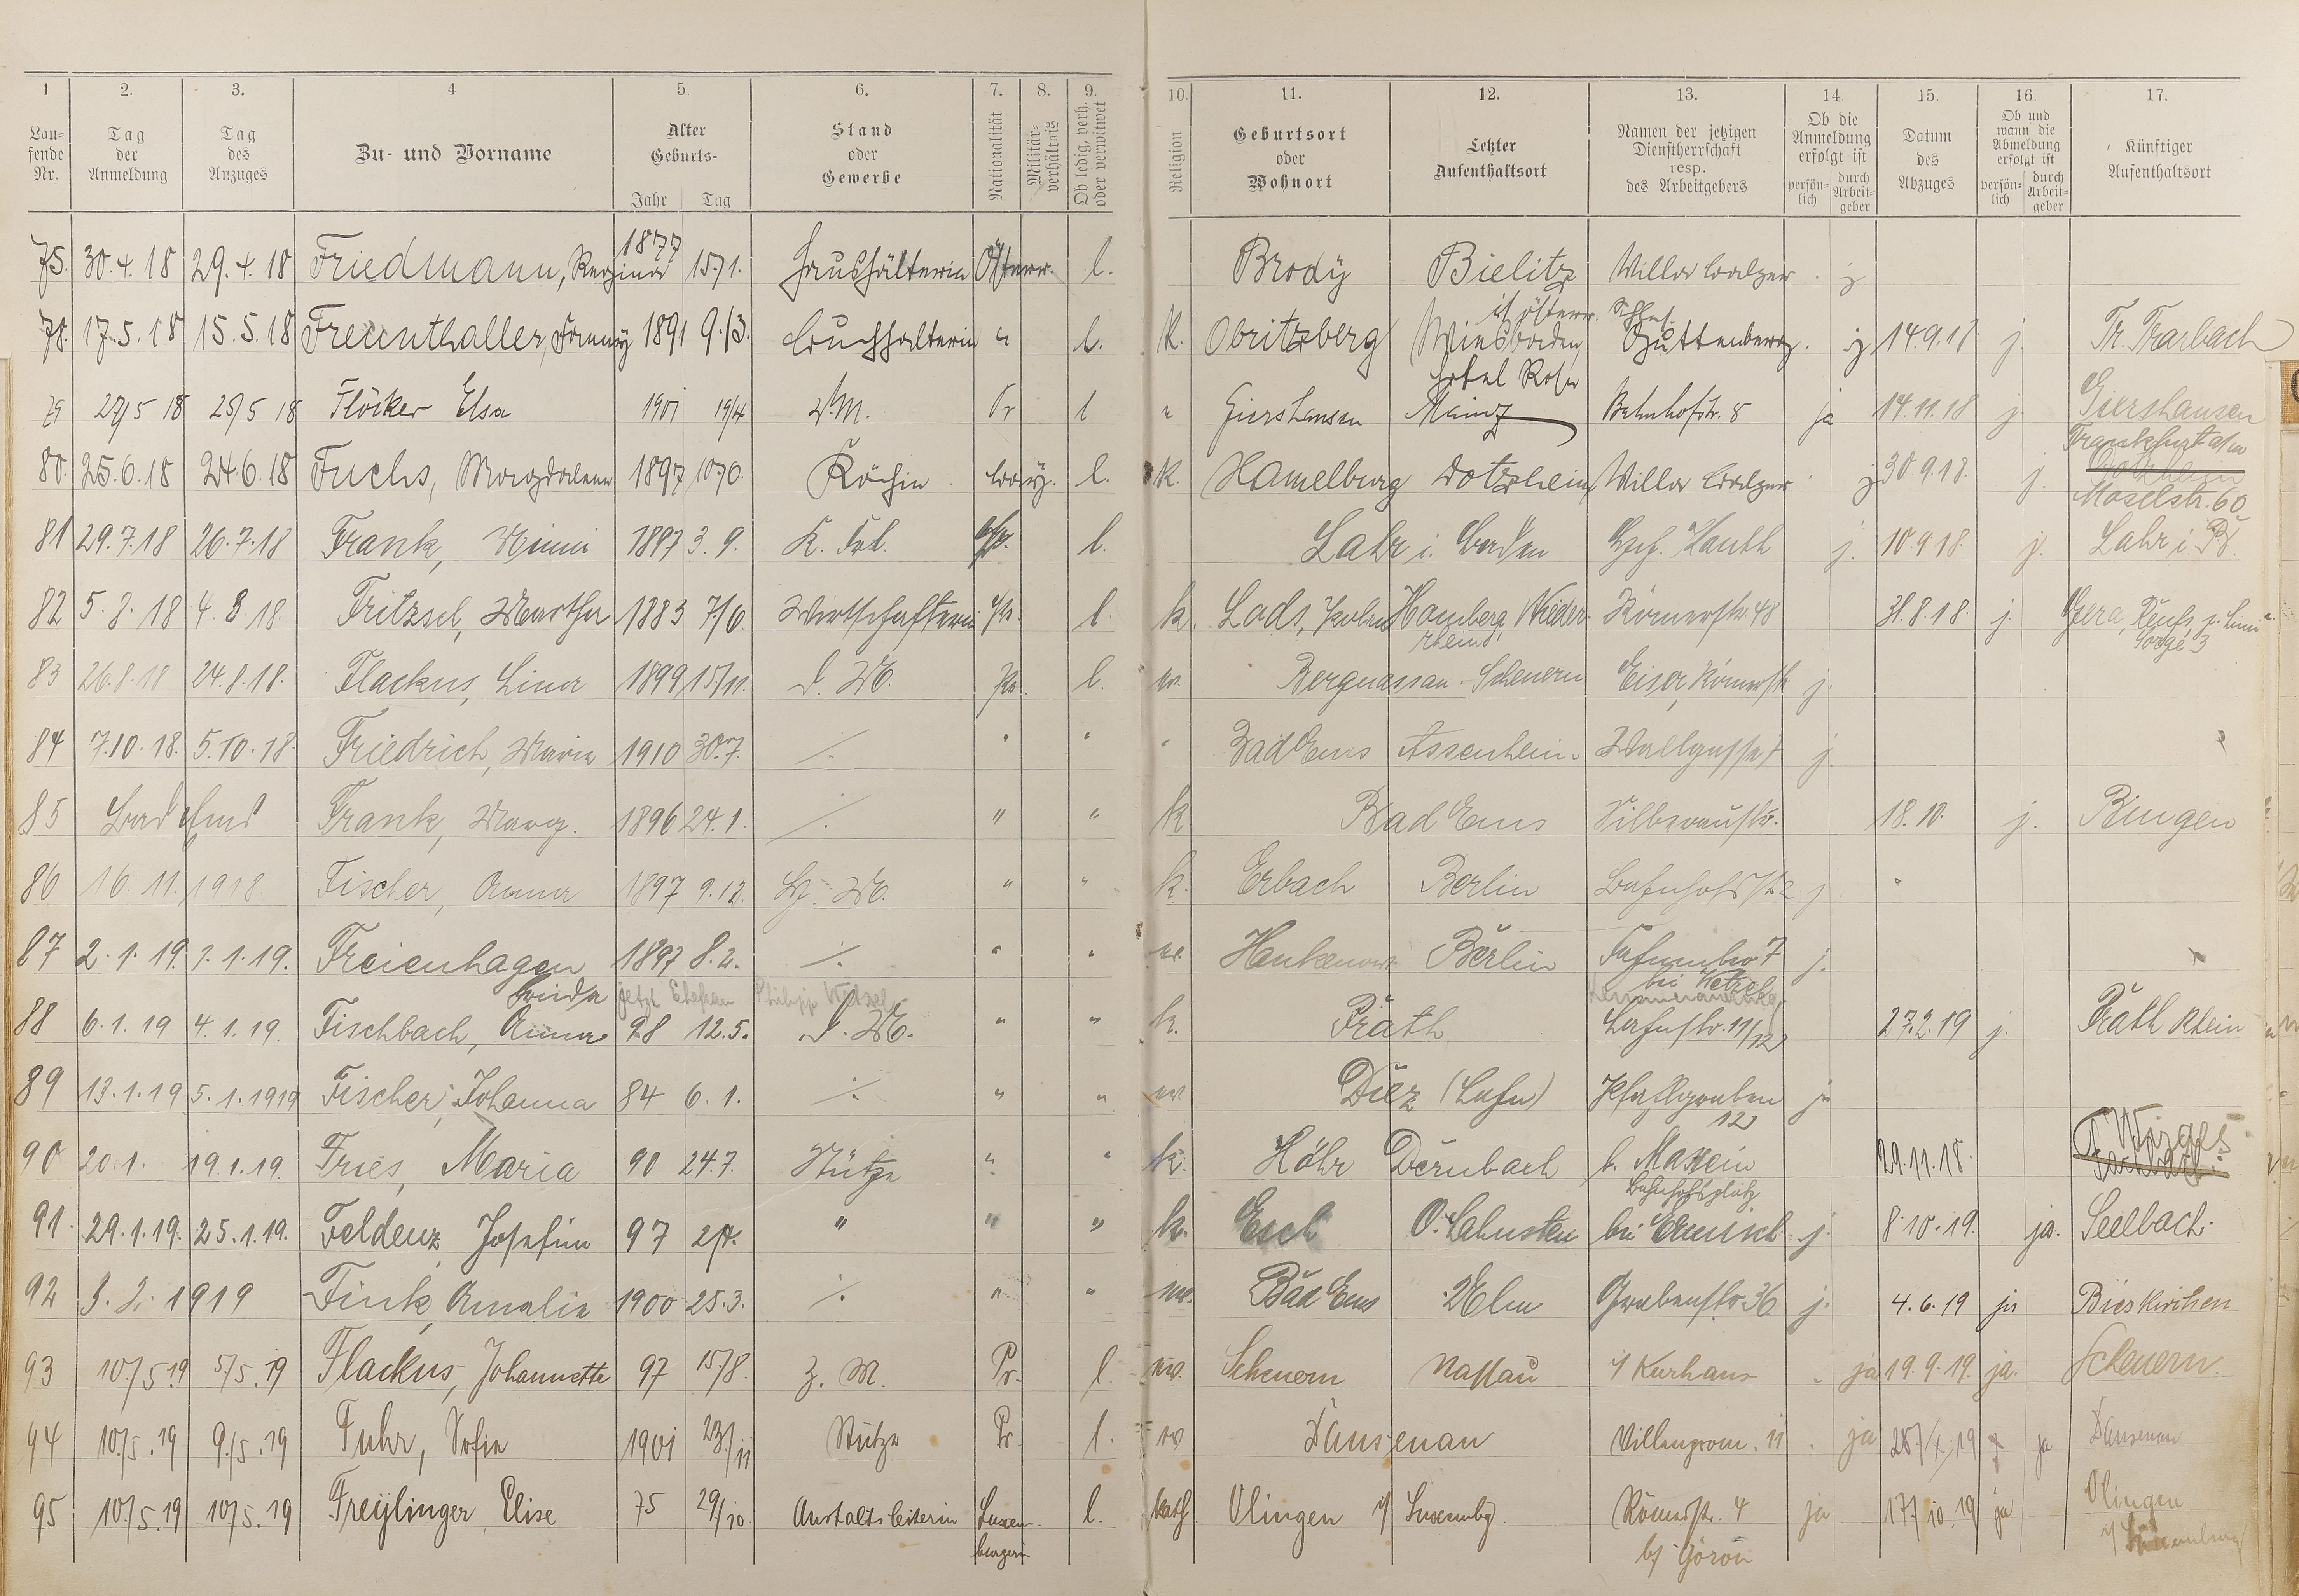 1 2. 3. 4 5. 6. 7. 8. 9. 10. 11. 12. 13. 14. 15. 16. 17.
Laufende Nr. Tag der Anmeldung Tag des Anzuges Zu- und Vorname Alter Geburts- Jahr Tag Stand oder Gewerbe Nationalität Militärverhältnis Ob ledig, verh. oder verwitwet Religion Geburtsort oder Wohnort Letzter Aufenthaltsort Namen der jetzigen Dienstherrschaft resp. des Arbeitgebers Ob die Anmeldung erfolgt ist persönlich durch Arbeitgeber Datum des Abzuges Ob und wann die Abmeldung erfolgt ist persönlich durch Arbeitgeber Künftiger Aufenthaltsort
75. 30.4.18 29.4.18 Friedmann, Regina 1877 15/1. Haushälterin Österr. l. Brody Bielitz Villa Balzer j
ist österr. Schles.
78. 17.5.18 15.5.18 Freunthaller, Fanny 1891 9./3. Buchhalterin " l. K. Obritzberg Wiesbaden Guttenberg. j 14.9.18 j. Tr. Trarbach
Hotel Rose
79 27/5 18 25/5 18 Flöcker Elsa 1901 19/4 Pr l " Giershausen Mainz Bahnhofstr. 8 ja 14.11.18 j. Giershausen
Frankfurt a/m
80. 25.6.18 24.6.18 Fuchs, Magdalena 1897 10/6. Köchin bay. l. K. Hamelburg Dotzheim Villa Balzer j 30.9.18. j. Dotzheim
Moselstr. 60
81 29.7.18 26.7.18 Frank, Minni 1897 3.9. l. Lahr i. Baden Hauth j. 10.9.18. j. Lahr i. B.
82 5.8.18 4.8.18. Fritzsel, Martha 1883 7/6 Wirtschafterin Pr. l. k. Lods, Polen Homberg Nieder- Römerstr. 48 31.8.18. j. Gera, Reuß,
rhein Sorge 3
83 26.8.18 24.8.18. Flackus, Lina 1899 15/11. D.M. Pr. l. ev. Bergnassau-Scheuern Römerstr j.
84 7.10.18. 5.10.18. Friedrich, Maria 1910 30.7. ./. " " " Bad Ems Assenheim Wallgasse j.
85 Bad Ems Frank, Marg. 1896 24.1. ./. " " k. Bad Ems Silberaustr. 18.10. j. Bingen
86 16.11.1918. Fischer, Anna 1897 9.12. " " k. Erbach Berlin j.
87 2.1.19. 1.1.19. Freienhagen 1897 8.2. ./. " " ev. Berlin 7 j.
Frieda jetzt Ehefrau Philipp Wetzel bei Wetzel
88 6.1.19 4.1.19. Fischbach, Anna 98 12.5. D.M. " " k. Prath Lahnstr. 11/12 27.2.19 j. Prath Rhein
89 13.1.19 5.1.1919 Fischer, Johanna 84 6.1. ./. " " ev Diez (Lahn) Pfahlgraben ja
12
90 20.1. 19.1.19. Fries, Maria 90 24.7. Stütze " " k. Höhr Dernbach b. Maxein 29.11.18. Wirges
Bahnhofsplatz Fachbach
91. 29.1.19. 25.1.19. Feldenz Josefine 97 " " " k. Esch O. Lahnstein bei j. 8.10.19. ja. Seelbach.
92 3.2.1919 Fink, Amalie 1900 25.3. ./. " " ev. Bad Ems Ulm Grabenstr. 36 j. 4.6.19 ja Bieskirchen
93 10./5.19 5/5.19 Flackus, Johannette 97 15./8. Z. M. Pr. l. ev. Scheuern Nassau Kurhaus ja 19.9.19. ja. Scheuern.
94 10./5.19 9./5.19 Fuhr, Sofie 1901 23./11 Stütze Pr. l. ev Dausenau Villenprom. 11 ja 28./X.19 ja Dausenau
95 10/5.19 10/5.19 Freylinger, Elise 75 29/10. Anstaltsleiterin Luxemburgerin l. kath. Ulingen i/ Luxembg. Römerstr. 4 ja 17/10.19 ja Ulingen
b/ Goron i/ Luxemburg